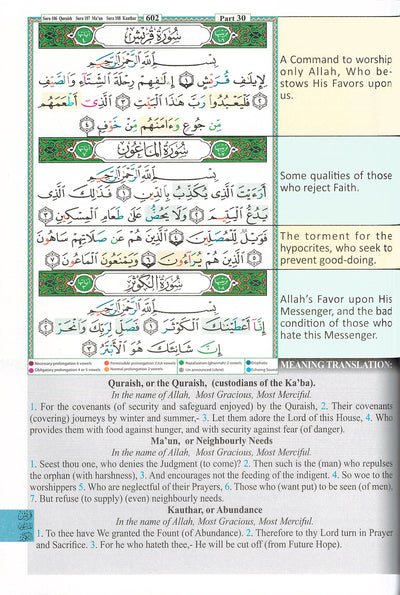 Sura 106 Quraish Sura 107 Ma'un Sura 108 Kauthar 602 Part 30
سُورَةُ قُرَيْشٍ
بِسْمِ اللَّهِ الرَّحْمَٰنِ الرَّحِيمِ
لِإِيلَٰفِ قُرَيْشٍ ١ إِۦلَٰفِهِمْ رِحْلَةَ الشِّتَاءِ وَالصَّيْفِ
٢ فَلْيَعْبُدُوا رَبَّ هَٰذَا الْبَيْتِ ٣ الَّذِي أَطْعَمَهُم
مِّن جُوعٍ وَءَامَنَهُم مِّنْ خَوْفٍ ٤
A Command to worship
only Allah, Who be-
stows His Favors upon
us.
سُورَةُ المَاعُونِ
بِسْمِ اللَّهِ الرَّحْمَٰنِ الرَّحِيمِ
أَرَءَيْتَ الَّذِي يُكَذِّبُ بِالدِّينِ ١ فَذَٰلِكَ الَّذِي
يَدُعُّ الْيَتِيمَ ٢ وَلَا يَحُضُّ عَلَىٰ طَعَامِ الْمِسْكِينِ ٣
Some qualities of those
who reject Faith.
فَوَيْلٌ لِّلْمُصَلِّينَ ٤ الَّذِينَ هُمْ عَن صَلَاتِهِمْ سَاهُونَ
٥ الَّذِينَ هُمْ يُرَاءُونَ ٦ وَيَمْنَعُونَ الْمَاعُونَ ٧
The torment for the
hypocrites, who seek to
prevent good-doing.
سُورَةُ الكَوْثَرِ
بِسْمِ اللَّهِ الرَّحْمَٰنِ الرَّحِيمِ
إِنَّا أَعْطَيْنَٰكَ الْكَوْثَرَ ١ فَصَلِّ لِرَبِّكَ وَانْحَرْ ٢
إِنَّ شَانِئَكَ هُوَ الْأَبْتَرُ ٣
Allah's Favor upon His
Messenger, and the bad
condition of those who
hate this Messenger.
Necessary prolongation 6 vowels Permissible prolongation 2,4,6 vowels Nazalization (ghunnah) 2 vowels Emphatic
Obligatory prolongation 4 or 5 vowels Normal prolongation 2 vowels Un announced (silent) Echoing Sound
MEANING TRANSLATION:
Quraish, or the Quraish, (custodians of the Ka'ba).
In the name of Allah, Most Gracious, Most Merciful.
1. For the covenants (of security and safeguard enjoyed) by the Quraish, 2. Their covenants
(covering) journeys by winter and summer,- 3. Let them adore the Lord of this House, 4. Who
provides them with food against hunger, and with security against fear (of danger).
Ma'un, or Neighbourly Needs
In the name of Allah, Most Gracious, Most Merciful.
1. Seest thou one, who denies the Judgment (to come)? 2. Then such is the (man) who repulses
the orphan (with harshness), 3. And encourages not the feeding of the indigent. 4. So woe to the
worshippers 5. Who are neglectful of their Prayers, 6. Those who (want put) to be seen (of men),
7. But refuse (to supply) (even) neighbourly needs.
Kauthar, or Abundance
In the name of Allah, Most Gracious, Most Merciful.
1. To thee have We granted the Fount (of Abundance). 2. Therefore to thy Lord turn in Prayer
and Sacrifice. 3. For he who hateth thee,- He will be cut off (from Future Hope).